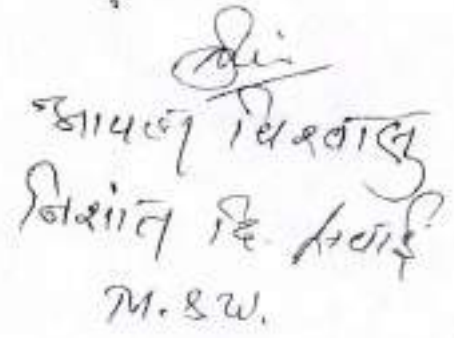 आपला विश्वासु
निशांत दि. सवाई
M.S.W.